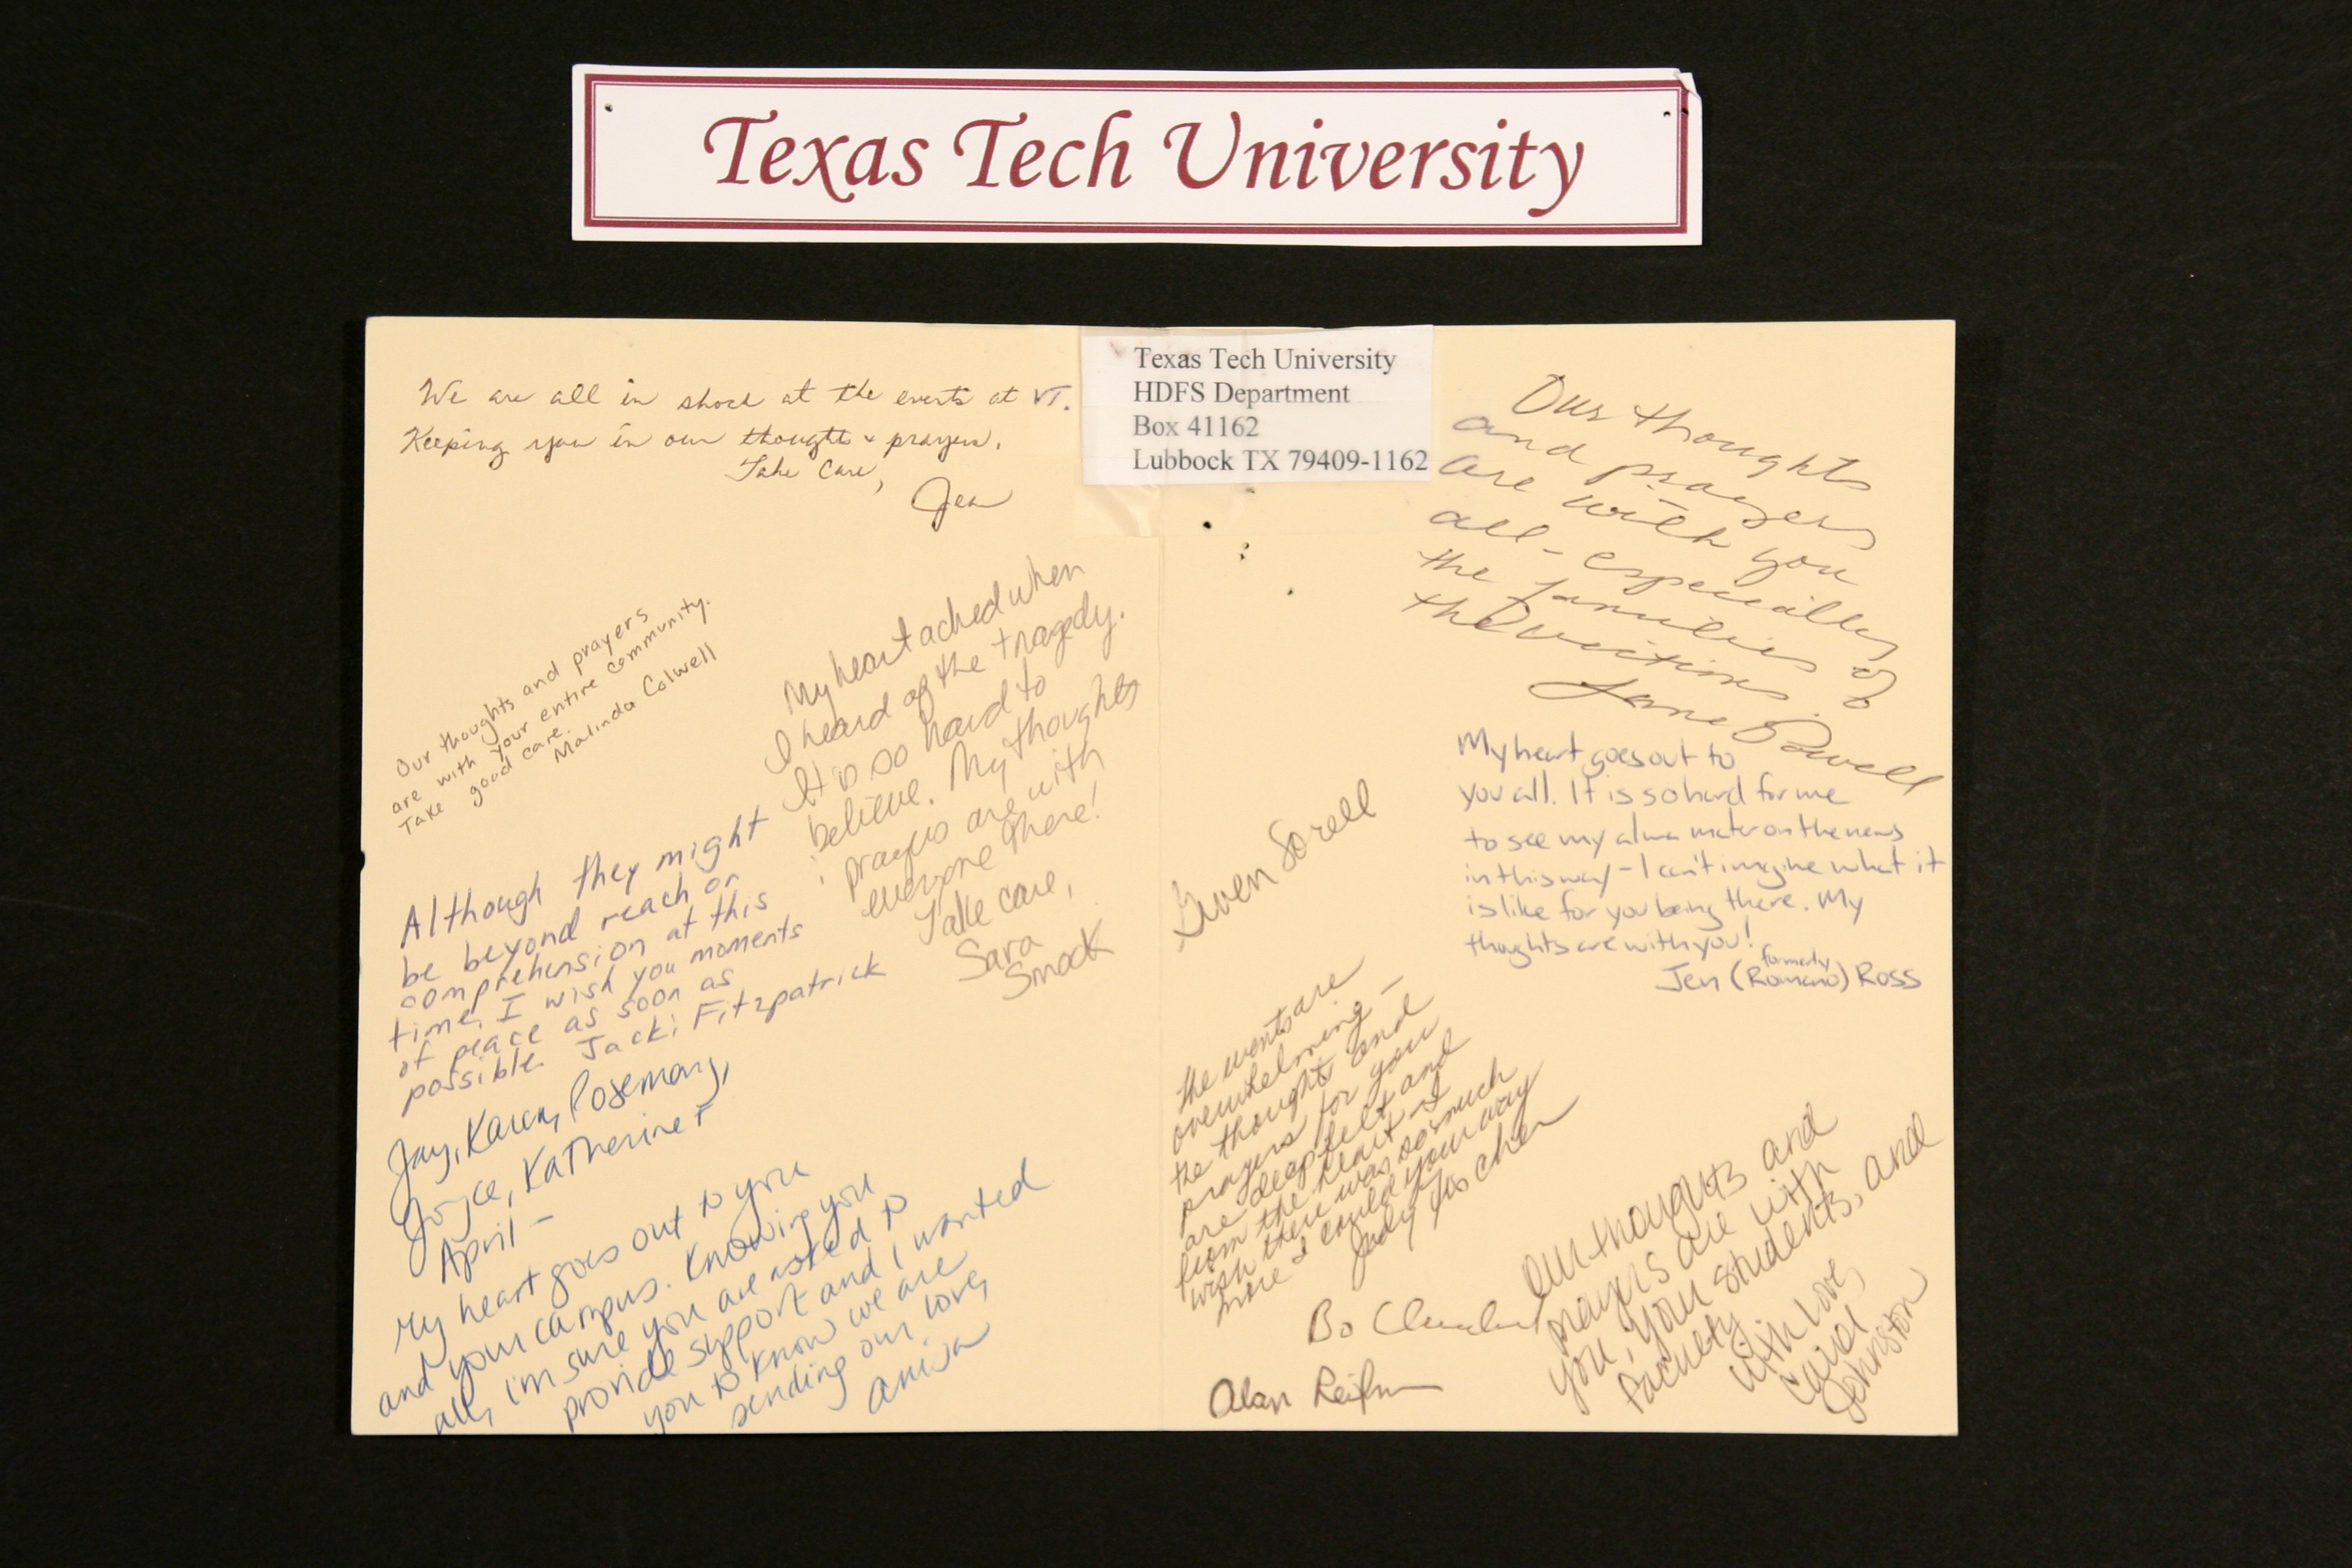 Texas Tech University
Texas Tech University
HDFS Department
Box 41162
Lubbock TX 79409-1162
We are all in shock at the events at VT.
Keeping you in our thoughts & prayers.
Take Care,
Jean
Our thoughts and prayers
are with your entire community.
Take good care.
Malinda Colwell
My heart ached when
I heard of the tragedy.
It is so hard to
believe. My thoughts
prayers are with
everyone there!
Take care,
Sara
Smock
Although they might
be beyond reach or
comprehension at this
time, I wish you moments
of peace as soon as
possible. Jacki Fitzpatrick
Jay, Karen, Rosemary,
Joyce, Katherine &
April -
My heart goes out to you
and your campus. Knowing you
all, i'm sure you are asked to
provide support and I wanted
you to know we are
sending our love,
Anisa
Our thoughts
and prayers
are with you
all - especially
the families of
the victims.
Jane Powell
My heart goes out to
you all. It is so hard for me
to see my alma mater on the news
in this way - I can't imagine what it
is like for you being there. My
thoughts are with you!
formerly
Jen (Romano) Ross
Gwen Sorell
The events are
overwhelming -
the thoughts and
prayers for you
are deepfelt and
from the heart - I
wish there was so much
more I could your way
Judy
Bo
Alan Reifman
Our thoughts and
prayers are with
you, your students, and
faculty
With love,
Carol
Johnston